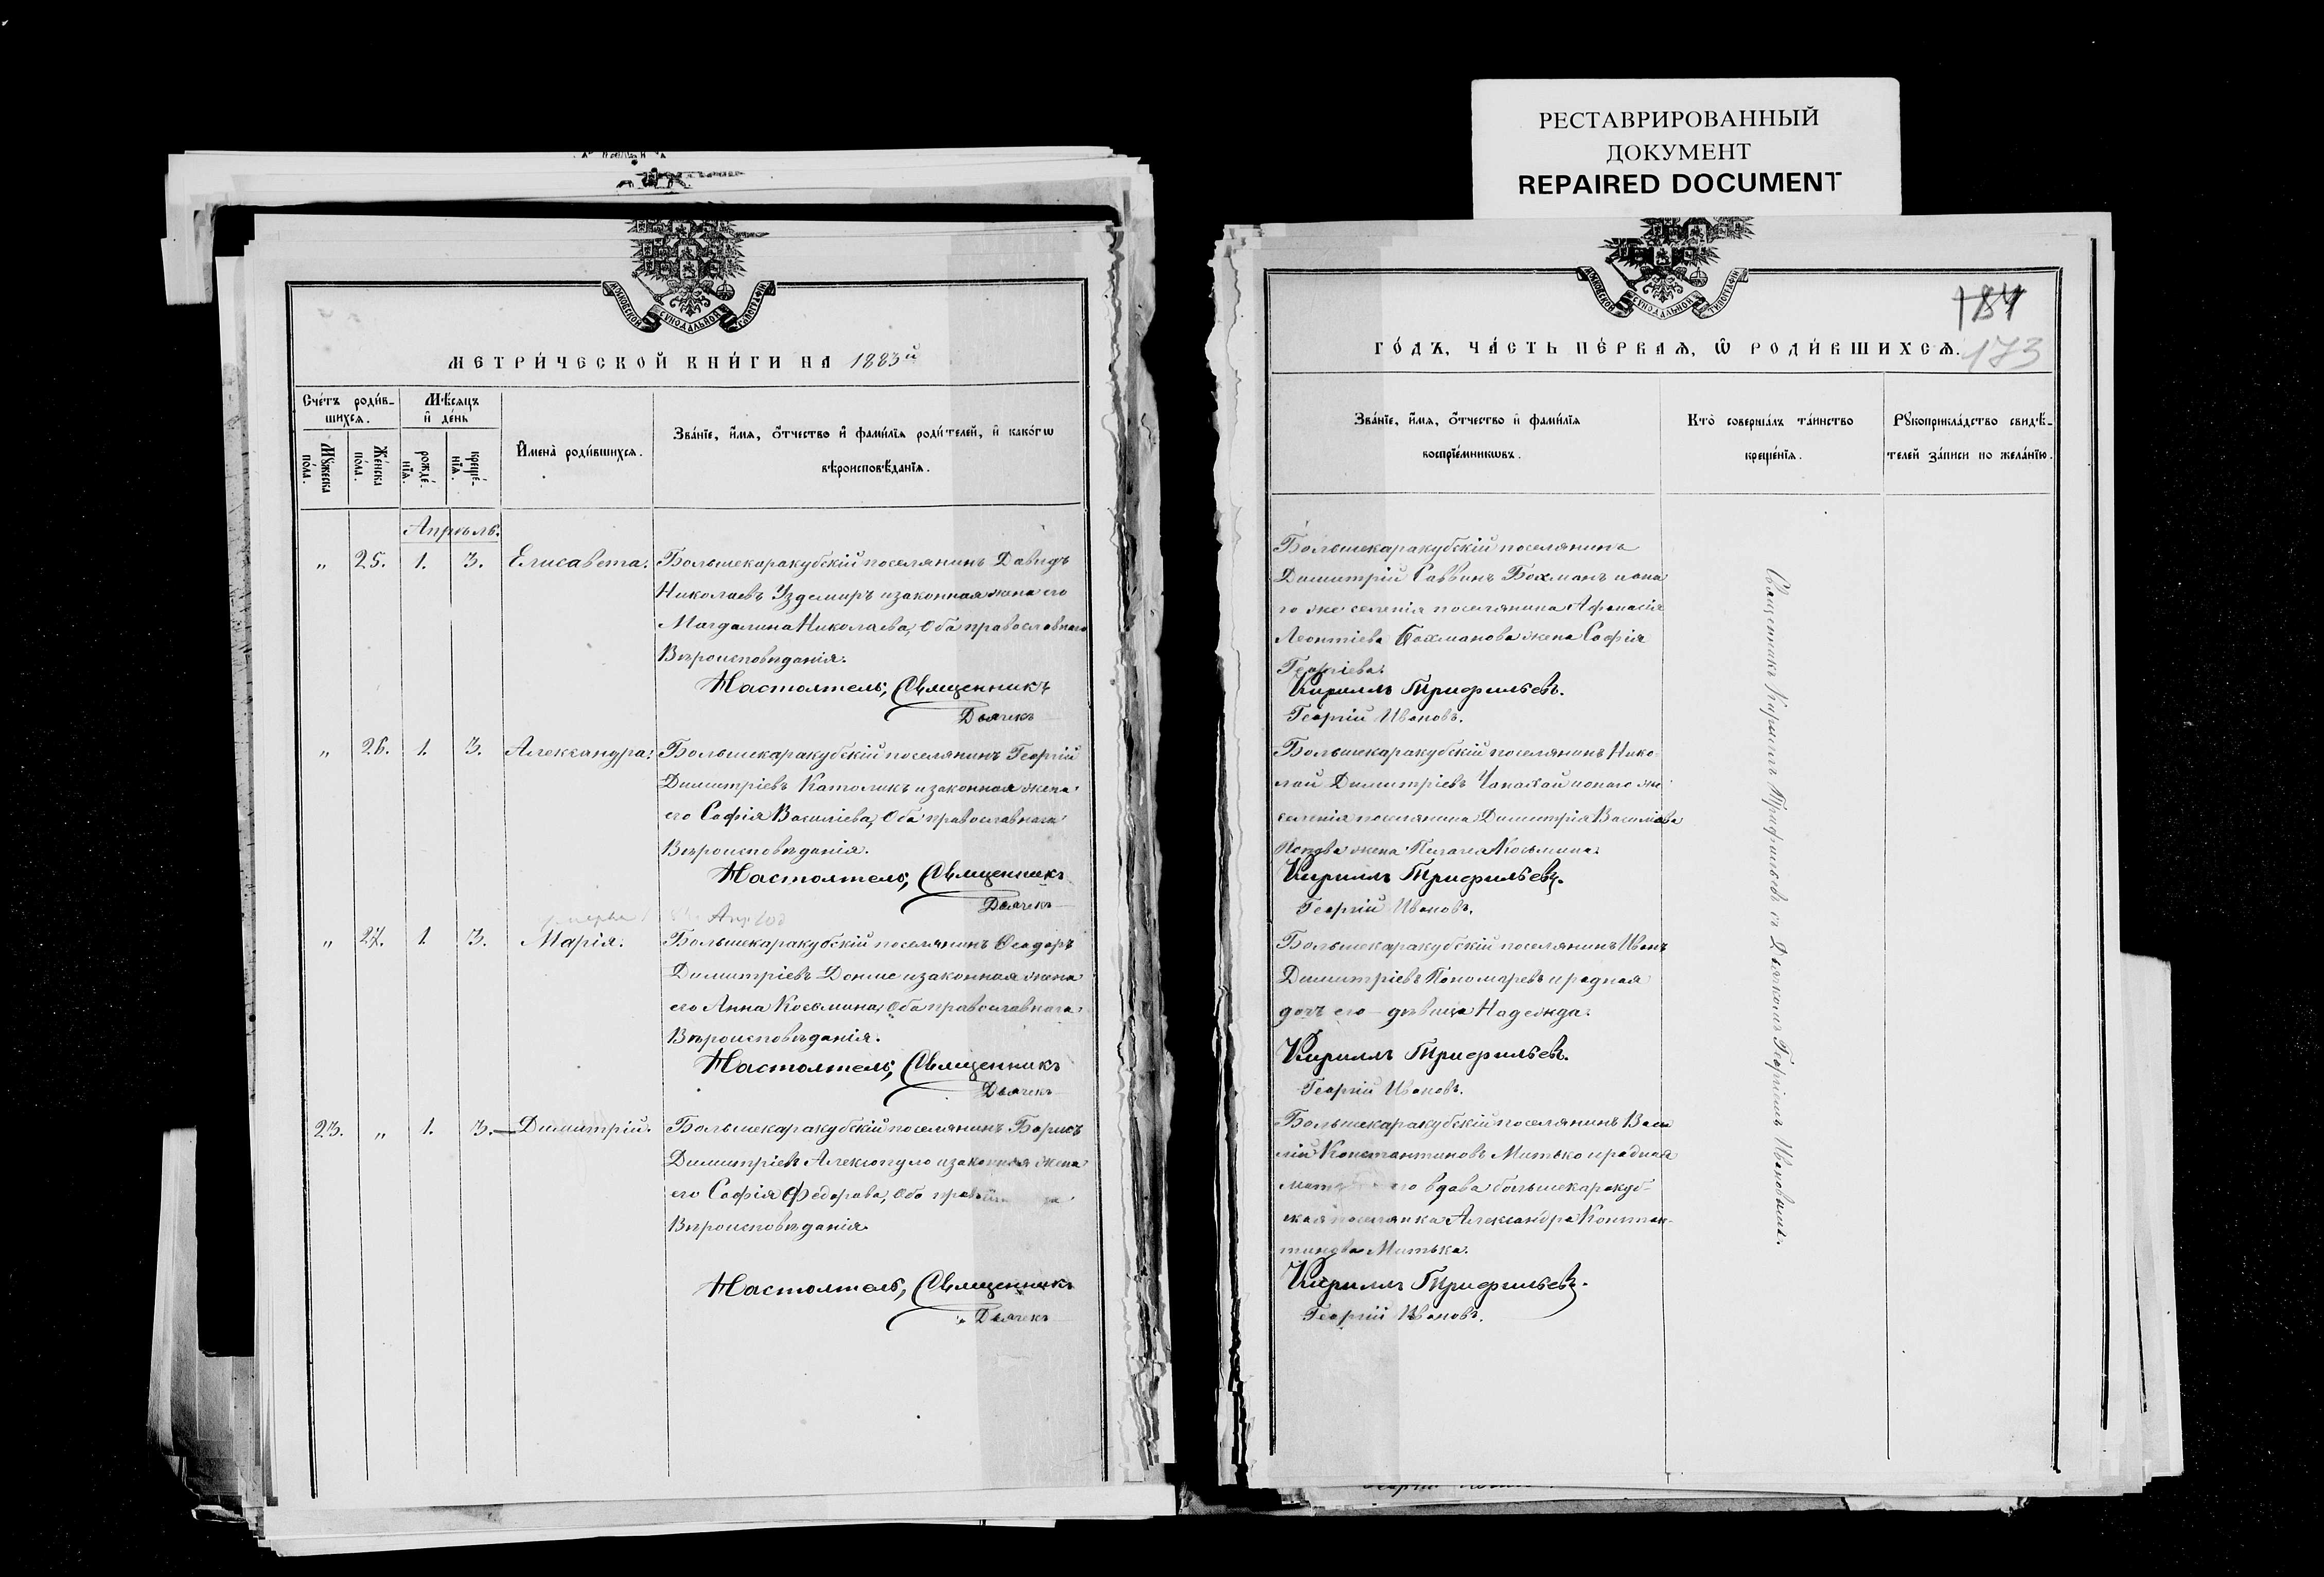 РЕСТАВРИРОВАННЫЙ
ДОКУМЕНТ
REPAIRED DOCUMENT
МОСКОВСКОЙ СѴНОДАЛЬНОЙ ТИПОГРАФІИ
МЕТРИ́ЧЕСКОЙ КНИ́ГИ НА 1883й
Сче́тъ роди́в-
шихсѧ.
Мѣ́сѧцъ
и҆ де́нь
Мꙋ́жеска
по́ла.
Же́нска
по́ла.
рожде́-
нїѧ.
креще́-
нїѧ.
И҆мена̀ роди́вшихсѧ.
Зва́нїе, и҆́мѧ, ѻ҆́тчество и҆ фами́лїѧ роди́телей, и҆ како́гѡ
вѣроисповѣ́данїѧ.
Апрѣль.
„ 25. 1. 3. Елисавета. Большекаракубскій поселянинъ Давидъ
Николаевъ Уздемиръ и законная жена его
Магдалина Николаева, Оба православнаго
Вѣроисповѣданія.
Настоятель, Священникъ
Дьячекъ
„ 26. 1. 3. Александра. Большекаракубскій поселянинъ Георгій
Димитріевъ Католикъ и законная жена
его Софія Василіева, Оба православнаго
Вѣроисповѣданія.
Настоятель, Священникъ
Дьячекъ
„ 27. 1. 3. Марія. Большекаракубскій поселянинъ Ѳеодоръ
Димитріевъ Донше и законная жена
его Анна Косьмина, Оба православнаго
Вѣроисповѣданія.
Настоятель, Священникъ
Дьячекъ
23. „ 1. 3. Димитрій. Большекаракубскій поселянинъ Борисъ
Димитріевъ Алексопуло и законная жена
его Софія Федорова, Оба
Вѣроисповѣданія.
Настоятель, Священникъ
Дьячекъ
МОСКОВСКОЙ СѴНОДАЛЬНОЙ ТИПОГРАФІИ
184
ГО́ДЪ, ЧА́СТЬ ПЕ́РВАѦ, Ѿ РОДИ́ВШИХСѦ. 173
Зва́нїе, и҆́мѧ, ѻ҆́тчество и҆ фами́лїѧ
воспрїе́мникѡвъ.
Кто̀ соверша́лъ та́инство
креще́нїѧ.
Рꙋкоприкла́дство свидѣ́-
телей за́писи по жела́нїю.
Большекаракубскій поселянинъ
Димитрій Саввинъ Бахманъ и она
го же селенія поселянина Афанасія
Леонтіева Бахманова жена Софія
Георгіева.
Кириллъ Трифильевъ.
Георгій Ивановъ.
Большекаракубскій поселянинъ Нико-
лай Димитріевъ и онаго же
селенія поселянина Димитрія Василіева
Попова жена Пелагея Косьмина.
Кириллъ Трифильевъ.
Георгій Ивановъ.
Большекаракубскій поселянинъ Иванъ
Димитріевъ Пономаревъ и родная
дочь его – дѣвица Надежда.
Кириллъ Трифильевъ.
Георгій Ивановъ.
Большекаракубскій поселянинъ Васи
лій Константиновъ Митько и родная
его вдова большекаракуб-
ская поселянка Александра Констан-
тинова Митька.
Кириллъ Трифильевъ.
Георгій Ивановъ.
Священникъ Кириллъ Трифильевъ съ Дьячкомъ Георгіемъ Ивановымъ.